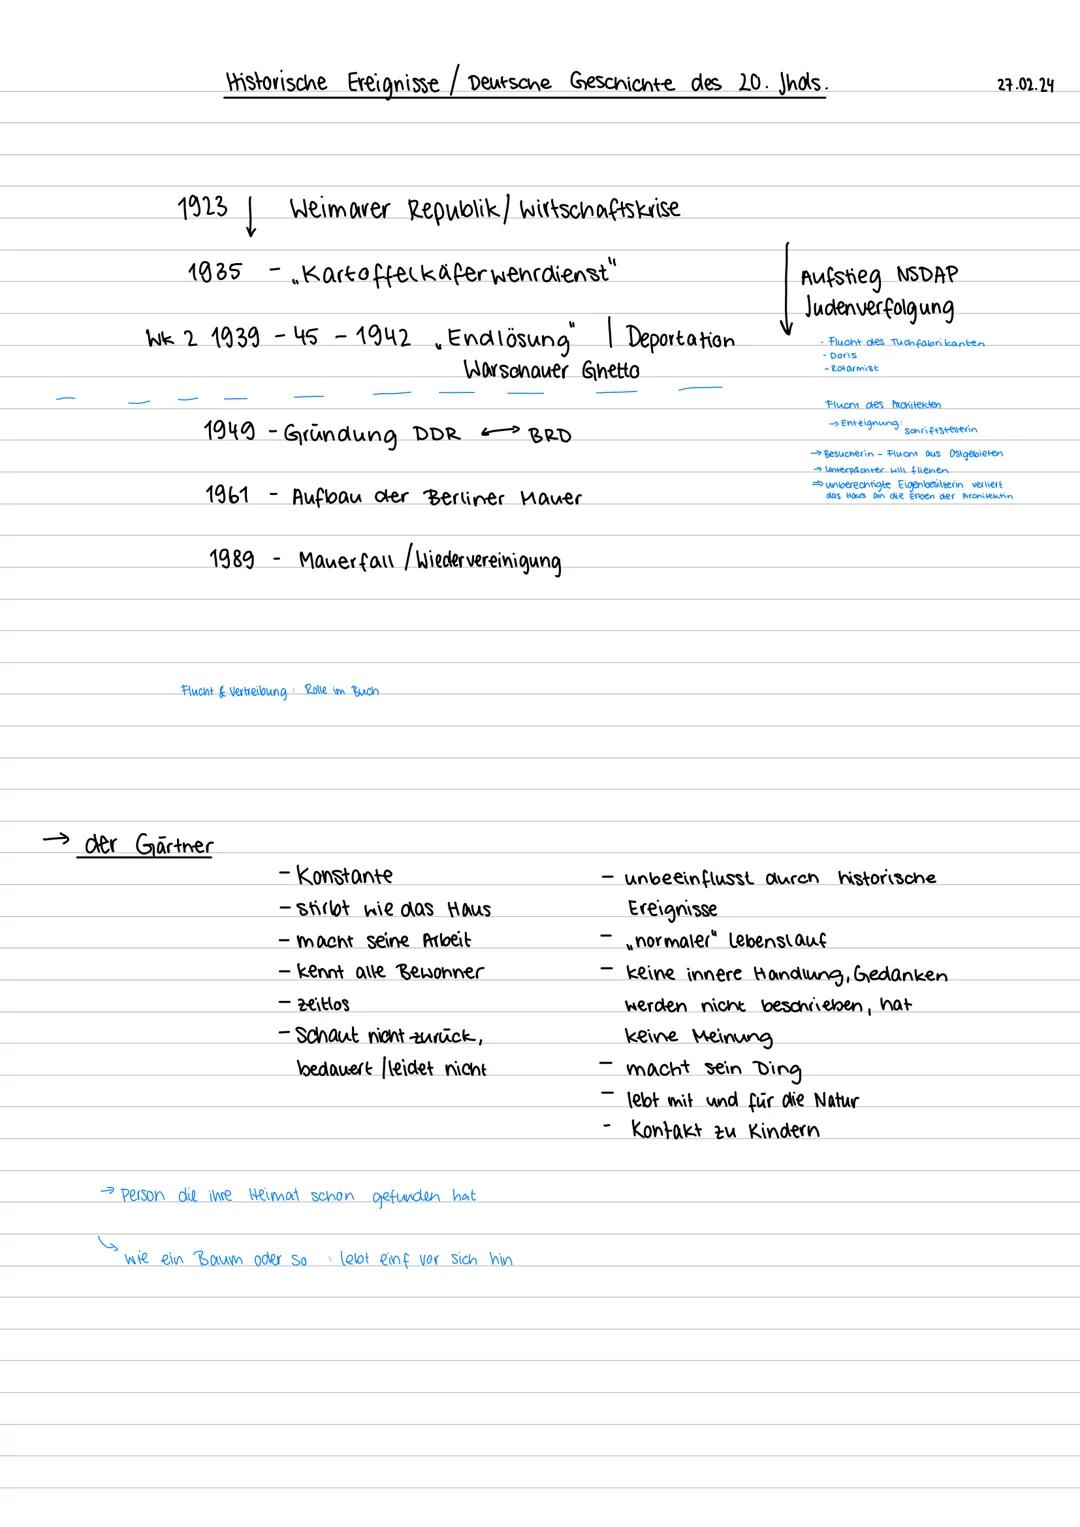 Historische Ereignisse / Deutsche Geschichte des 20. Jhds.
27.02.24
1923 ↓ Weimarer Republik / Wirtschaftskrise
1935 - „Kartoffelkäferwehrdienst"
Aufstieg NSDAP
Judenverfolgung
- Flucht des Tuchfabrikanten
- Doris
- Rotarmist
Wk 2 1939 - 45 - 1942 „Endlösung" | Deportation
Warschauer Ghetto
Flucht des Architekten
→ Enteignung: Schriftstellerin
→ Besucherin - Flucht aus Ostgebieten
→ Unterpächter will fliehen
⇒ unberechtigte Eigenbesitzerin verliert
das Haus an die Erben der Architektin
1949 - Gründung DDR ↔ BRD
1961 - Aufbau der Berliner Mauer
1989 - Mauerfall / Wiedervereinigung
Flucht & Vertreibung : Rolle im Buch
→ der Gärtner
- Konstante
- stirbt wie das Haus
- macht seine Arbeit
- kennt alle Bewohner
- zeitlos
- Schaut nicht zurück,
bedauert / leidet nicht
- unbeeinflusst durch historische
Ereignisse
- „normaler" Lebenslauf
- keine innere Handlung, Gedanken
werden nicht beschrieben, hat
keine Meinung
- macht sein Ding
- lebt mit und für die Natur
- Kontakt zu Kindern
→ Person die ihre Heimat schon gefunden hat
↳ wie ein Baum oder so : lebt einf vor sich hin